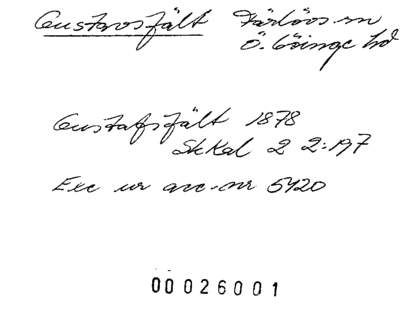 Gustavsfält Färlövs sn
Ö. Göinge hd
Gustafsfält 1878
SkKal 2 2:197
Exc ur acc.nr 5420
00026001